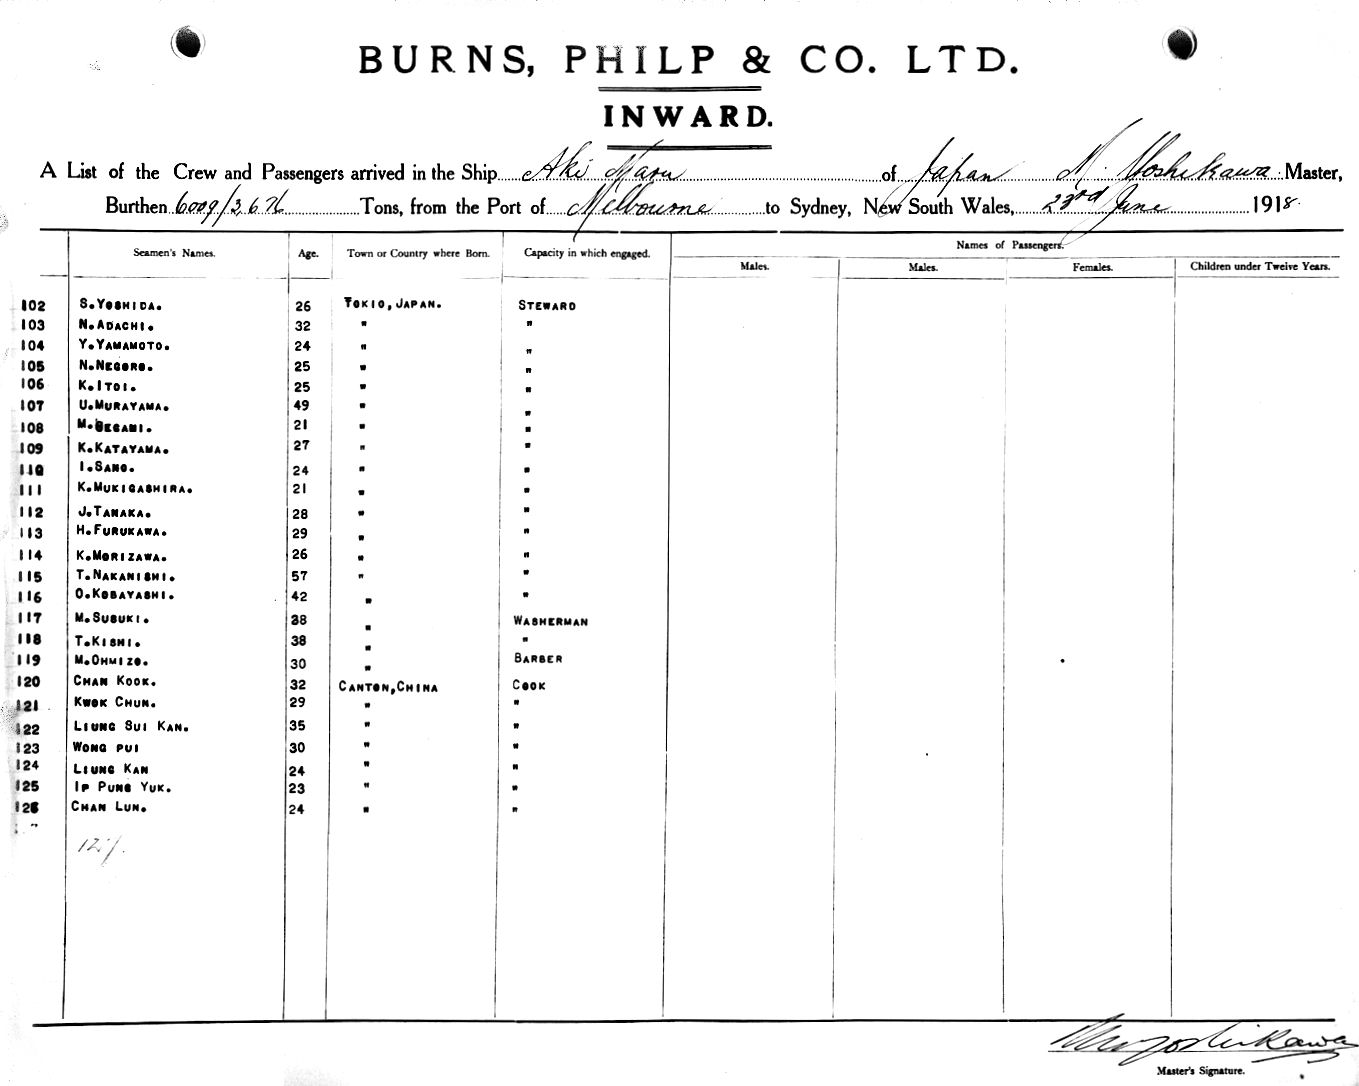 BURNS, PHILP & CO. LTD.
INWARD.
A List of the Crew and Passengers arrived in the Ship Aki Maru of Japan M. Yoshikawa Master,
Burthen 6009/3676 Tons, from the Port of Melbourne to Sydney, New South Wales, 23rd June 1918.
Names of Passengers.
Seamen's Names. Age. Town or Country where Born. Capacity in which engaged. Males. Males. Females. Children under Twelve Years.
102 S.YOSHIDA. 26 TOKIO,JAPAN. STEWARD
103 N.ADACHI. 32 " "
104 Y.YAMAMOTO. 24 " "
105 N.NEGORO. 25 " "
106 K.ITOI. 25 " "
107 U.MURAYAMA. 49 " "
108 M. 21 " "
109 K.KATAYAMA. 27 " "
110 I.SANO. 24 " "
111 K.MUKIGASHIRA. 21 " "
112 J.TANAKA. 28 " "
113 H.FURUKAWA. 29 " "
114 K.MORIZAWA. 26 " "
115 T.NAKANISHI. 57 " "
116 O.KOBAYASHI. 42 " "
117 M.SUBUKI. 38 " WASHERMAN
118 T.KISHI. 38 " "
119 M.OHMIZO. 30 " BARBER
120 CHAN KOOK. 32 CANTON,CHINA COOK
121 KWOK CHUN. 29 " "
122 LIUNG SUI KAN. 35 " "
123 WONG PUI 30 " "
124 LIUNG KAN 24 " "
125 IP PUNG YUK. 23 " "
126 CHAN LUN. 24 " "
M Yoshikawa
Master's Signature.